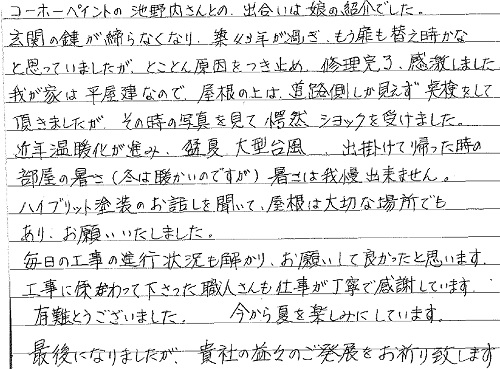 コーホーペイントの池野内さんとの、出合いは娘の紹介でした。
玄関の鍵が締らなくなり、築49年が過ぎ、もう扉も替え時かな
と思っていましたが、とことん原因をつき止め、修理完了、感激しました
我が家は平屋建なので、屋根の上は、道路側しか見えず 実検をして
頂きましたが、その時の写真を見て 愕然 ショックを受けました。
近年温暖化が進み、猛夏 大型台風、出掛けて帰った時の
部屋の暑さ(冬は暖かいのですが)暑さは我慢出来ません。
ハイブリット塗装のお話しを聞いて、屋根は大切な場所でも
あり、お願いいたしました。
毎日の工事の進行状況も解かり、お願いして良かったと思います。
工事に係わって下さった職人さんも仕事が丁寧で感謝しています。
有難とうございました。 今から夏を楽しみにしています。
最後になりましたが、貴社の益々のご発展をお祈り致します